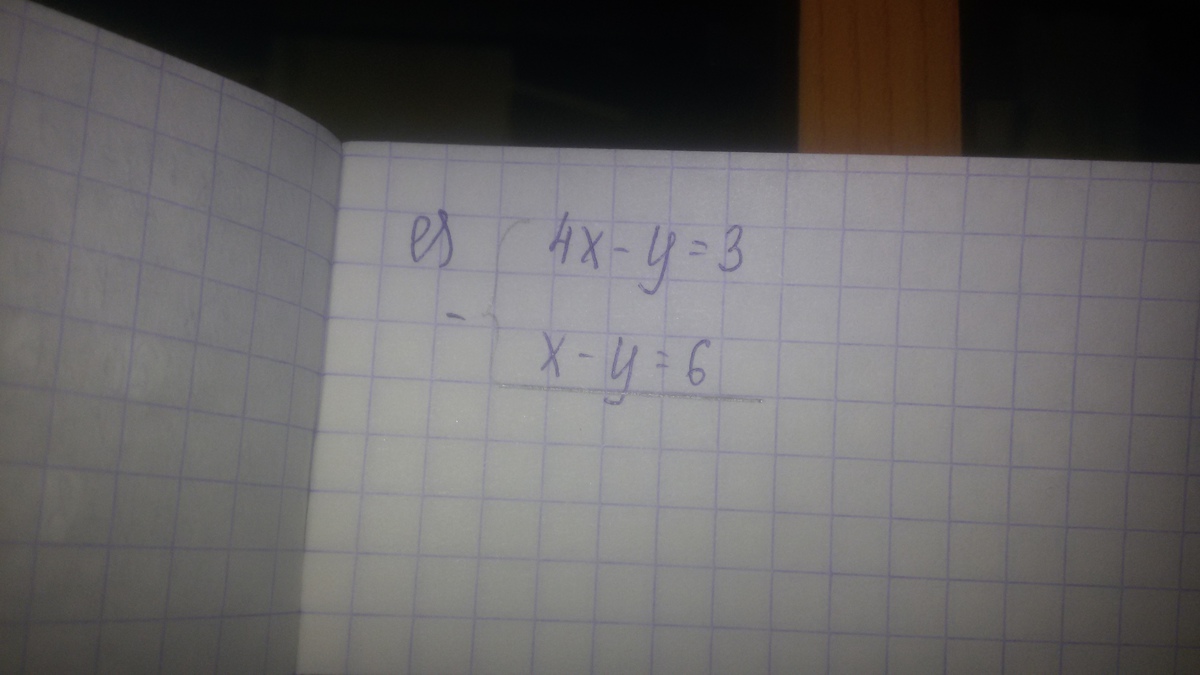 es 4x - y = 3
-
x - y = 6